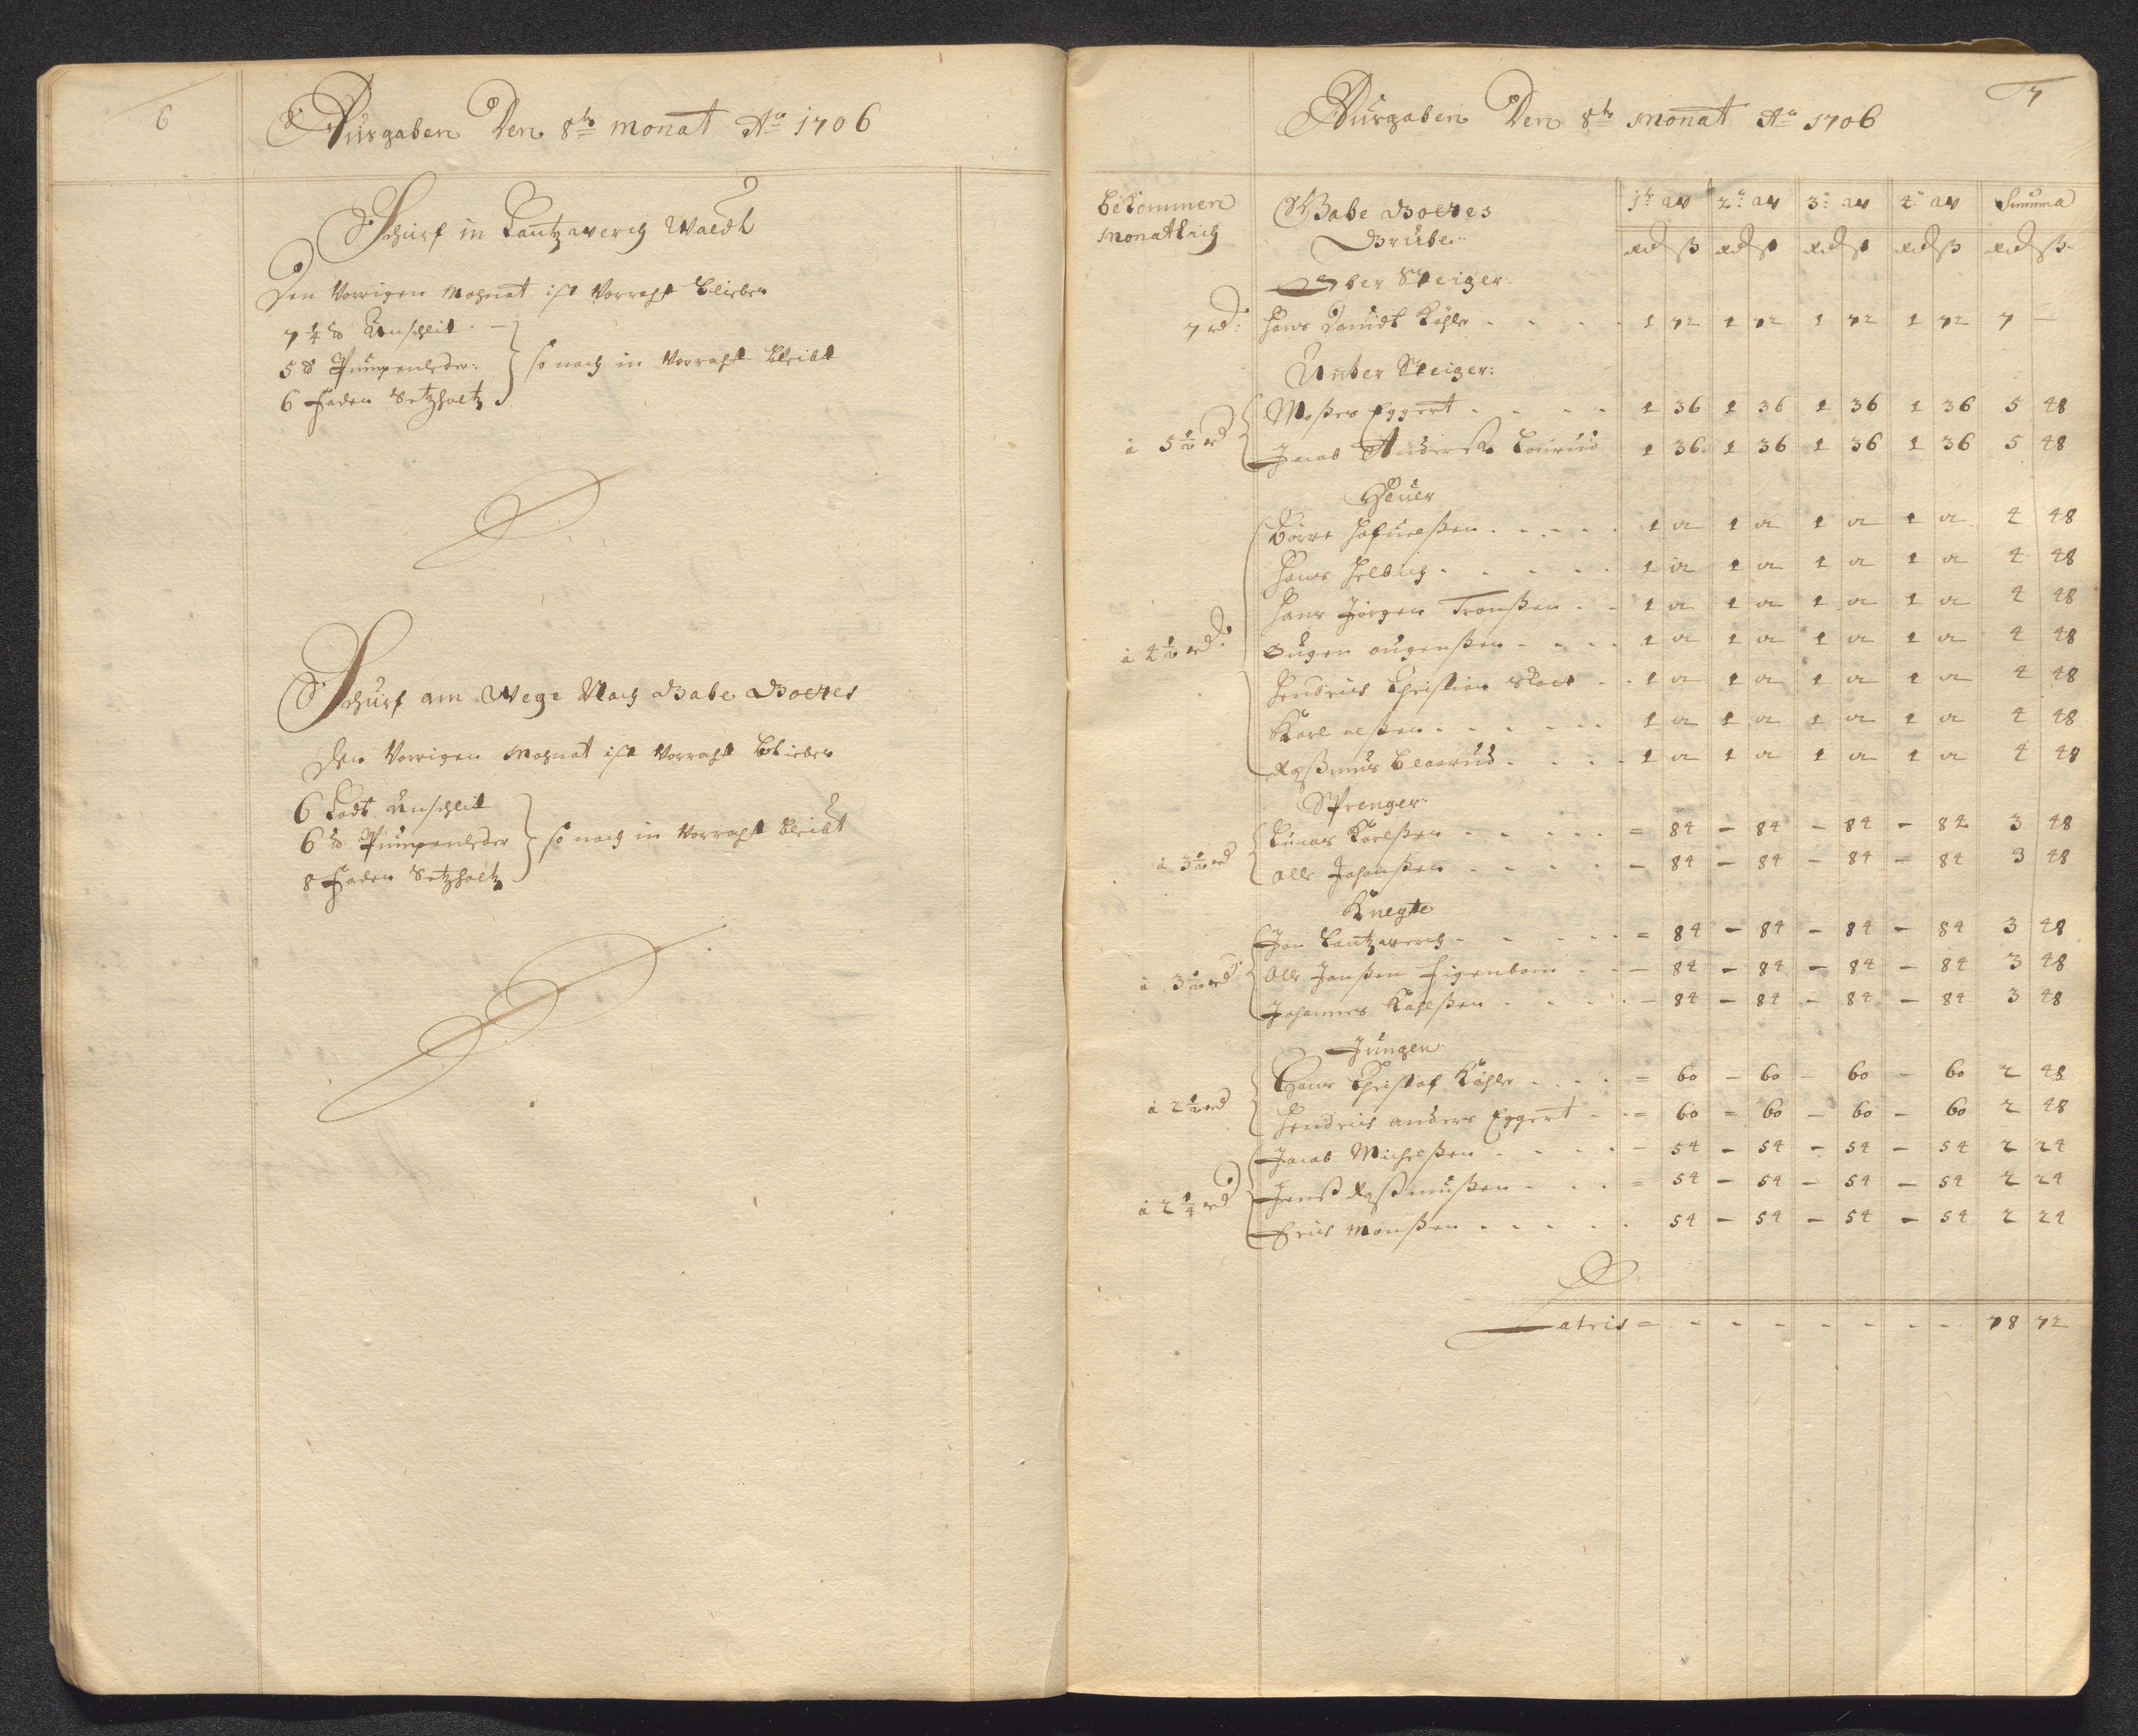 6
Ausgaben Den 8te monat Ao 1706
Schurf in Lantzwerch Waldt
Den Vorrigen Mohnat ist Vorraht blieben
7 1/4 ℔ Unschlit
5 ℔ Pumpenleder
6 Faden Setzholtz
so noch in Vorraht bleibt
Schurf am Wege Nach Gabe Gottes
Den Vorrigen Mohnat ist Vorraht blieben
6 Lodt Unschlit
6 ℔ Pumpenleder
8 Faden Setzholtz
so noch in Vorraht bleibt
7
Ausgaben Den 8te monat Ao 1706
bekommen Monatlich
Gabe Gottes Grube
1te aw 2: aw 3: aw 4: aw Summa
rd ß rd ß rd ß rd ß rd ß
Ober Steiger
7 rd: Hans Davidt Köhler 1 72 1 72 1 72 1 72 7 —
Unter Steiger:
à 5 1/2 rd
Moses Eggert 1 36 1 36 1 36 1 36 5 48
Jacob Anders 1 36 1 36 1 36 1 36 5 48
Heuer
à 4 1/2 rd:
Börre 1 12 1 12 1 12 1 12 4 48
Hans Helbig 1 12 1 12 1 12 1 12 4 48
Hans Jörgen Tronßen 1 12 1 12 1 12 1 12 4 48
Augen Augenßen 1 12 1 12 1 12 1 12 4 48
Hendrich Christian 1 12 1 12 1 12 1 12 4 48
Karl Olßen 1 12 1 12 1 12 1 12 4 48
Raßmus 1 12 1 12 1 12 1 12 4 48
Sprenger
à 3 1/2 rd
Lucas Karlßen = 84 – 84 – 84 – 84 3 48
Olle Johanßen – 84 – 84 – 84 – 84 3 48
Knegte
à 3 1/2 rd
Jan Lantzwerch = 84 – 84 – 84 – 84 3 48
Olle Janßen Figenbom – 84 – 84 – 84 – 84 3 48
Johannes Kahlßen – 84 – 84 – 84 – 84 3 48
Jungen
à 2 1/2 rd
Hans Christof Köhler = 60 – 60 – 60 – 60 2 48
Hendrich Anders Eggert = 60 – 60 – 60 – 60 2 48
à 2 1/4 rd
Jacob Michelßen – 54 – 54 – 54 – 54 2 24
Jenß Raßmußen = 54 – 54 – 54 – 54 2 24
Erich Monßen 54 – 54 – 54 – 54 2 24
Latris = 78 72